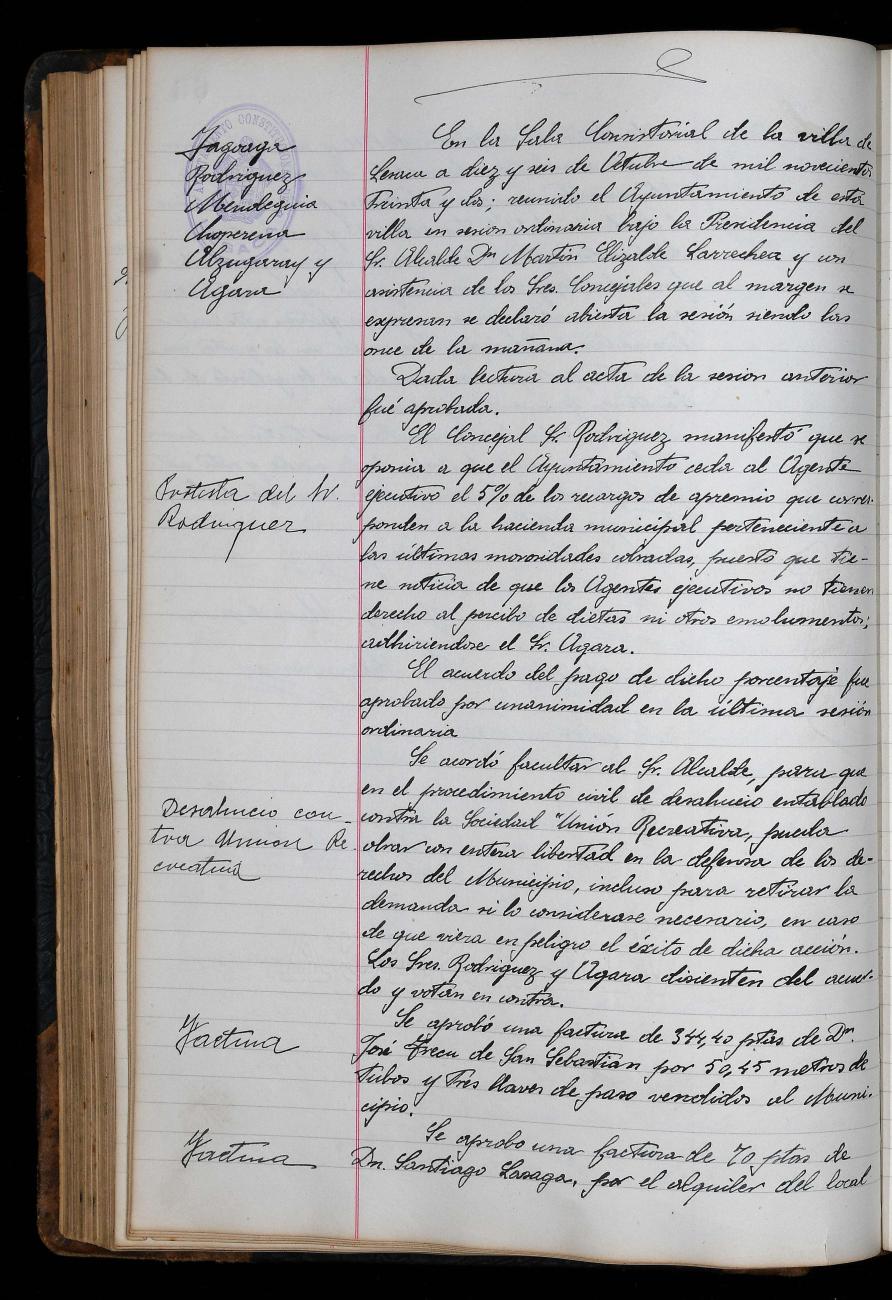 Jagoaga
Rodriguez
Mendeguia
Choperena
Alzugaray y
Agara
En la Sala Consistorial de la villa de
Lesaca a diez y seis de Octubre de mil novecientos
treinta y dos; reunido el Ayuntamiento de esta
villa en sesion ordinaria bajo la Presidencia del
Sr. Alcalde Dn Martin Elizalde Larrechea y con
asistencia de los Sres. Concejales que al margen se
expresan se declaró abierta la sesión siendo las
once de la mañana.
Dada lectura al acta de la sesion anterior
fué aprobada.
Protesta del Sr.
Rodriguez
El Concejal Sr. Rodriguez manifestó que se
oponia a que el Ayuntamiento ceda al Agente
ejecutivo el 5% de los recargos de apremio que corres-
ponden a la hacienda municipal perteneciente a
las ultimas morosidades cobradas, puesto que tie-
ne noticia de que los Agentes ejecutivos no tienen
derecho al percibo de dietas ni otros emolumentos;
adhiriendose el Sr. Agara.
El acuerdo del pago de dicho porcentaje fue
aprobado por unanimidad en la última sesión
ordinaria
Desahucio con-
tra Union Re-
creativa
Se acordó facultar al Sr. Alcalde, para que
en el procedimiento civil de desahucio entablado
contra la Sociedad "Unión Recreativa, pueda
obrar con entera libertad en la defensa de los de-
rechos del Municipio, incluso para retirar la
demanda si lo considerase necesario, en caso
de que viera en peligro el éxito de dicha acción.
Los Sres. Rodriguez y Agara disienten del acuer-
do y votan en contra.
Factura
Se aprobó una factura de 344,40 ptas de Dn.
José Trecu de San Sebastian por 50,45 metros de
tubos y tres llaves de paso vendidos al Muni-
cipio.
Factura
Se aprobo una factura de 70 ptas de
Dn. Santiago Lasaga, por el alquiler del local